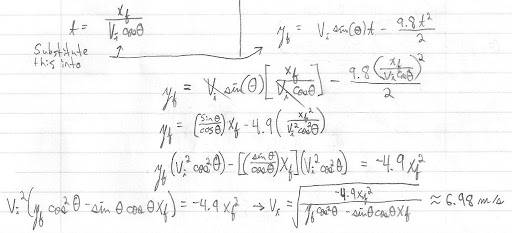 t = x_f / (V_i cosθ)
Substitute this into
y_f = V_i sin(θ)t - 9.8t²/2
y_f = V_i sin(θ)[x_f / (V_i cosθ)] - 9.8(x_f / (V_i cosθ))²/2
y_f = (sinθ/cosθ)x_f - 4.9(x_f² / (V_i² cos²θ))
y_f(V_i² cos²θ) - [(sinθ/cosθ)x_f](V_i² cos²θ) = -4.9x_f²
V_i²(y_f cos²θ - sinθ cosθ x_f) = -4.9x_f² → V_i = √(-4.9x_f² / (y_f cos²θ - sinθ cosθ x_f)) ≈ 6.98 m/s